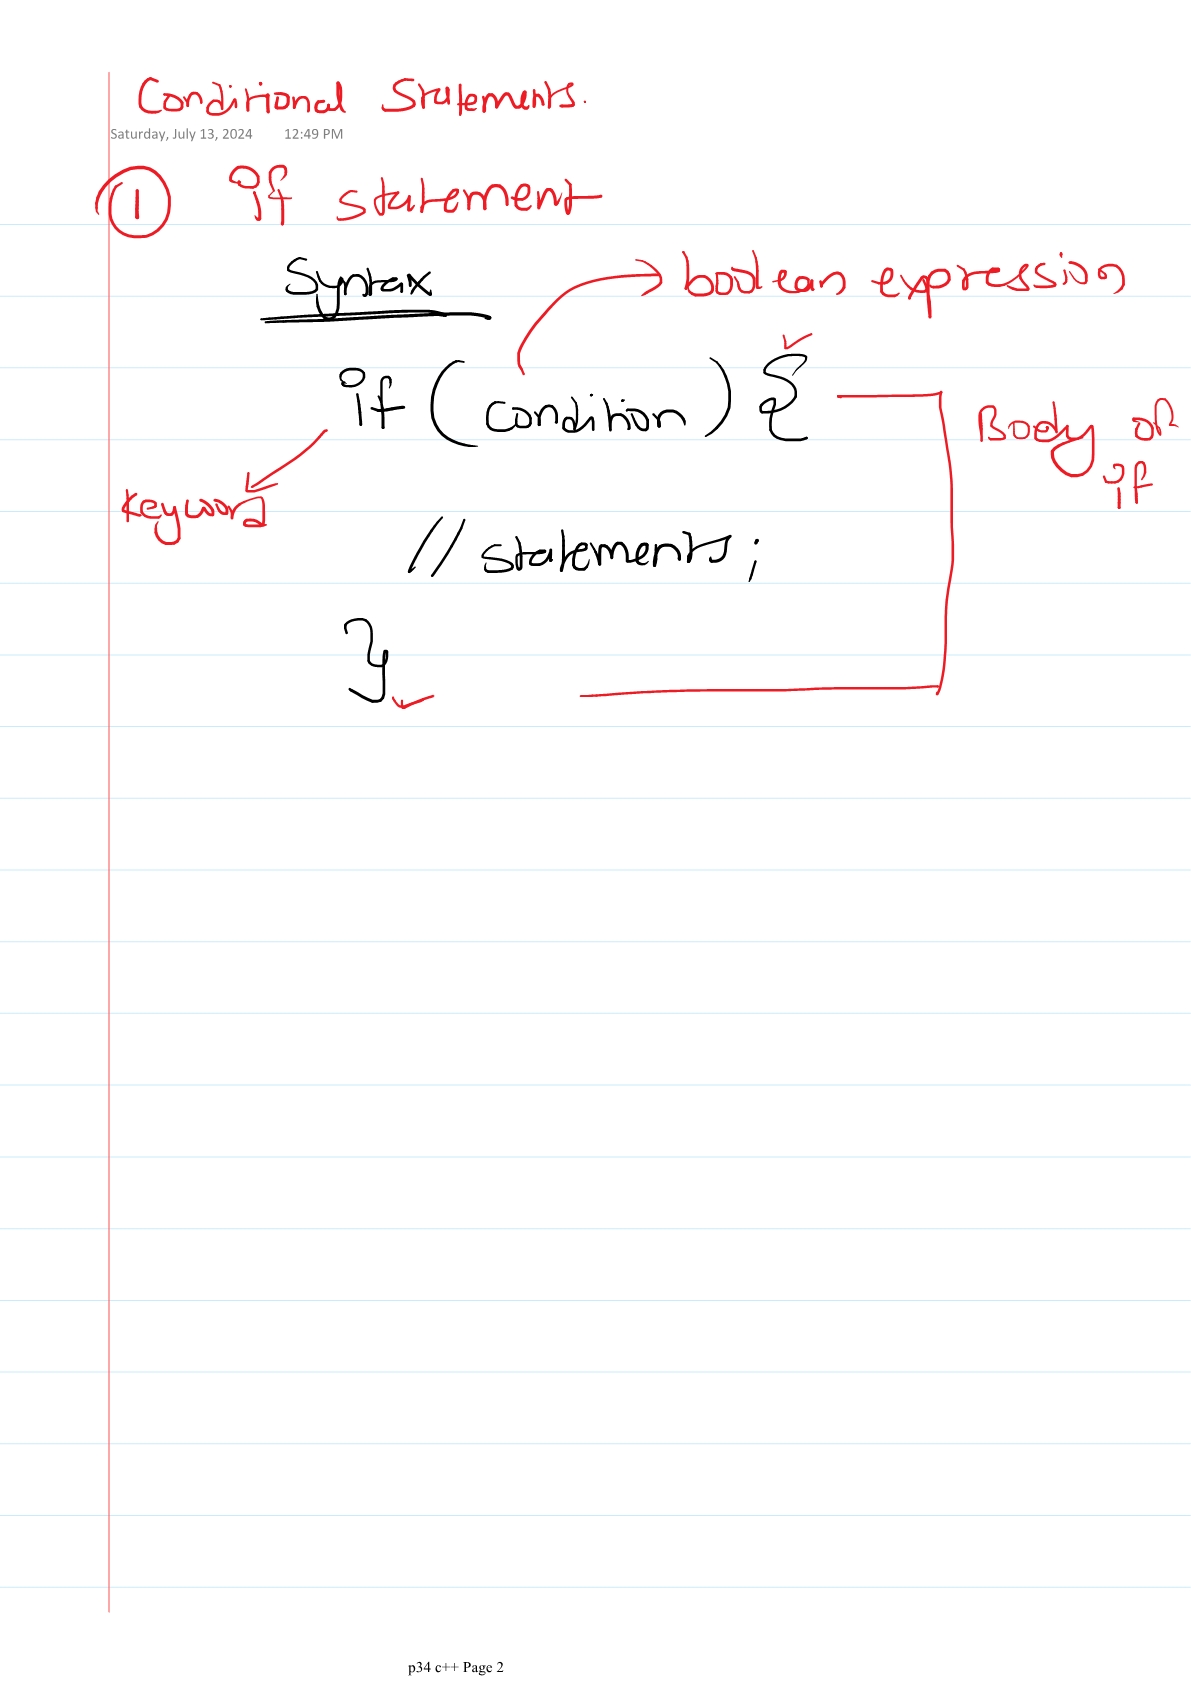 Conditional Statements.
Saturday, July 13, 2024 12:49 PM
1 if statement
Syntax
boolean expression
if (condition) {
Body of
if
keyword
// statements;
}
p34 c++ Page 2